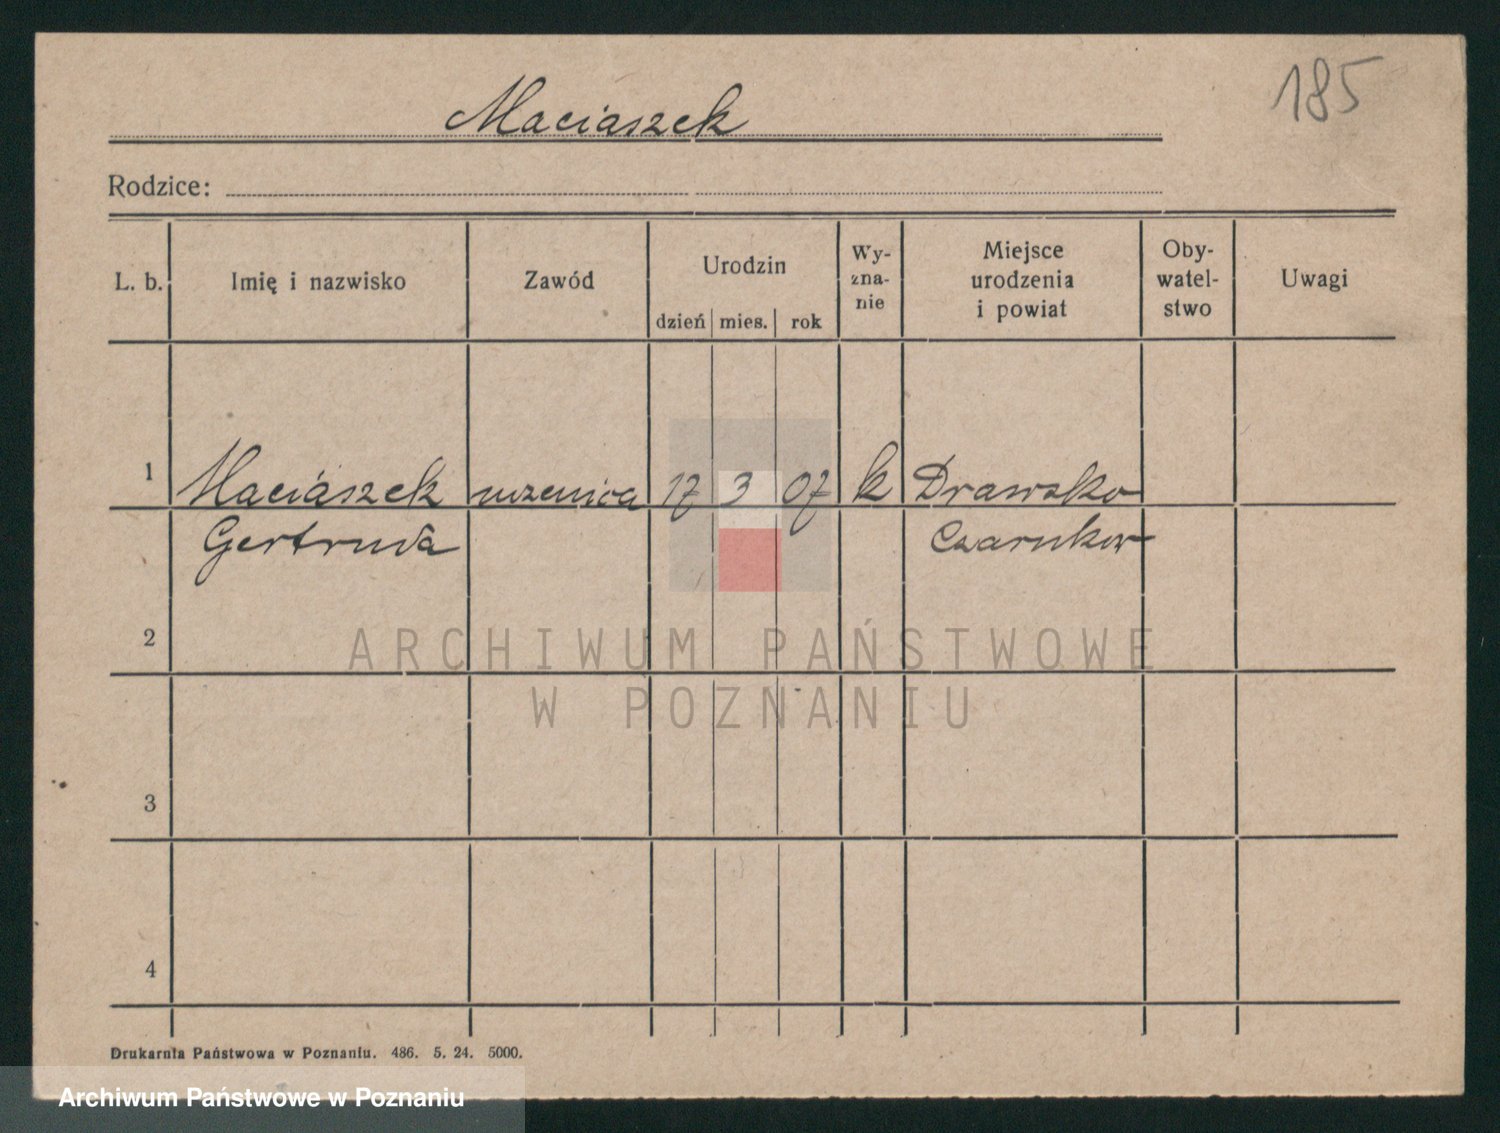 185
Maciaszek
Rodzice:
L. b. Imię i nazwisko Zawód Urodzin dzień mies. rok Wy-zna-nie Miejsce urodzenia i powiat Oby-watel-stwo Uwagi
1 Maciaszek uczenica 17 3 07 k Drawsko
Gertruda Czarnkow
2
3
4
Drukarnia Państwowa w Poznaniu. 486. 5. 24. 5000.
ARCHIWUM PAŃSTWOWE
W POZNANIU
Archiwum Państwowe w Poznaniu